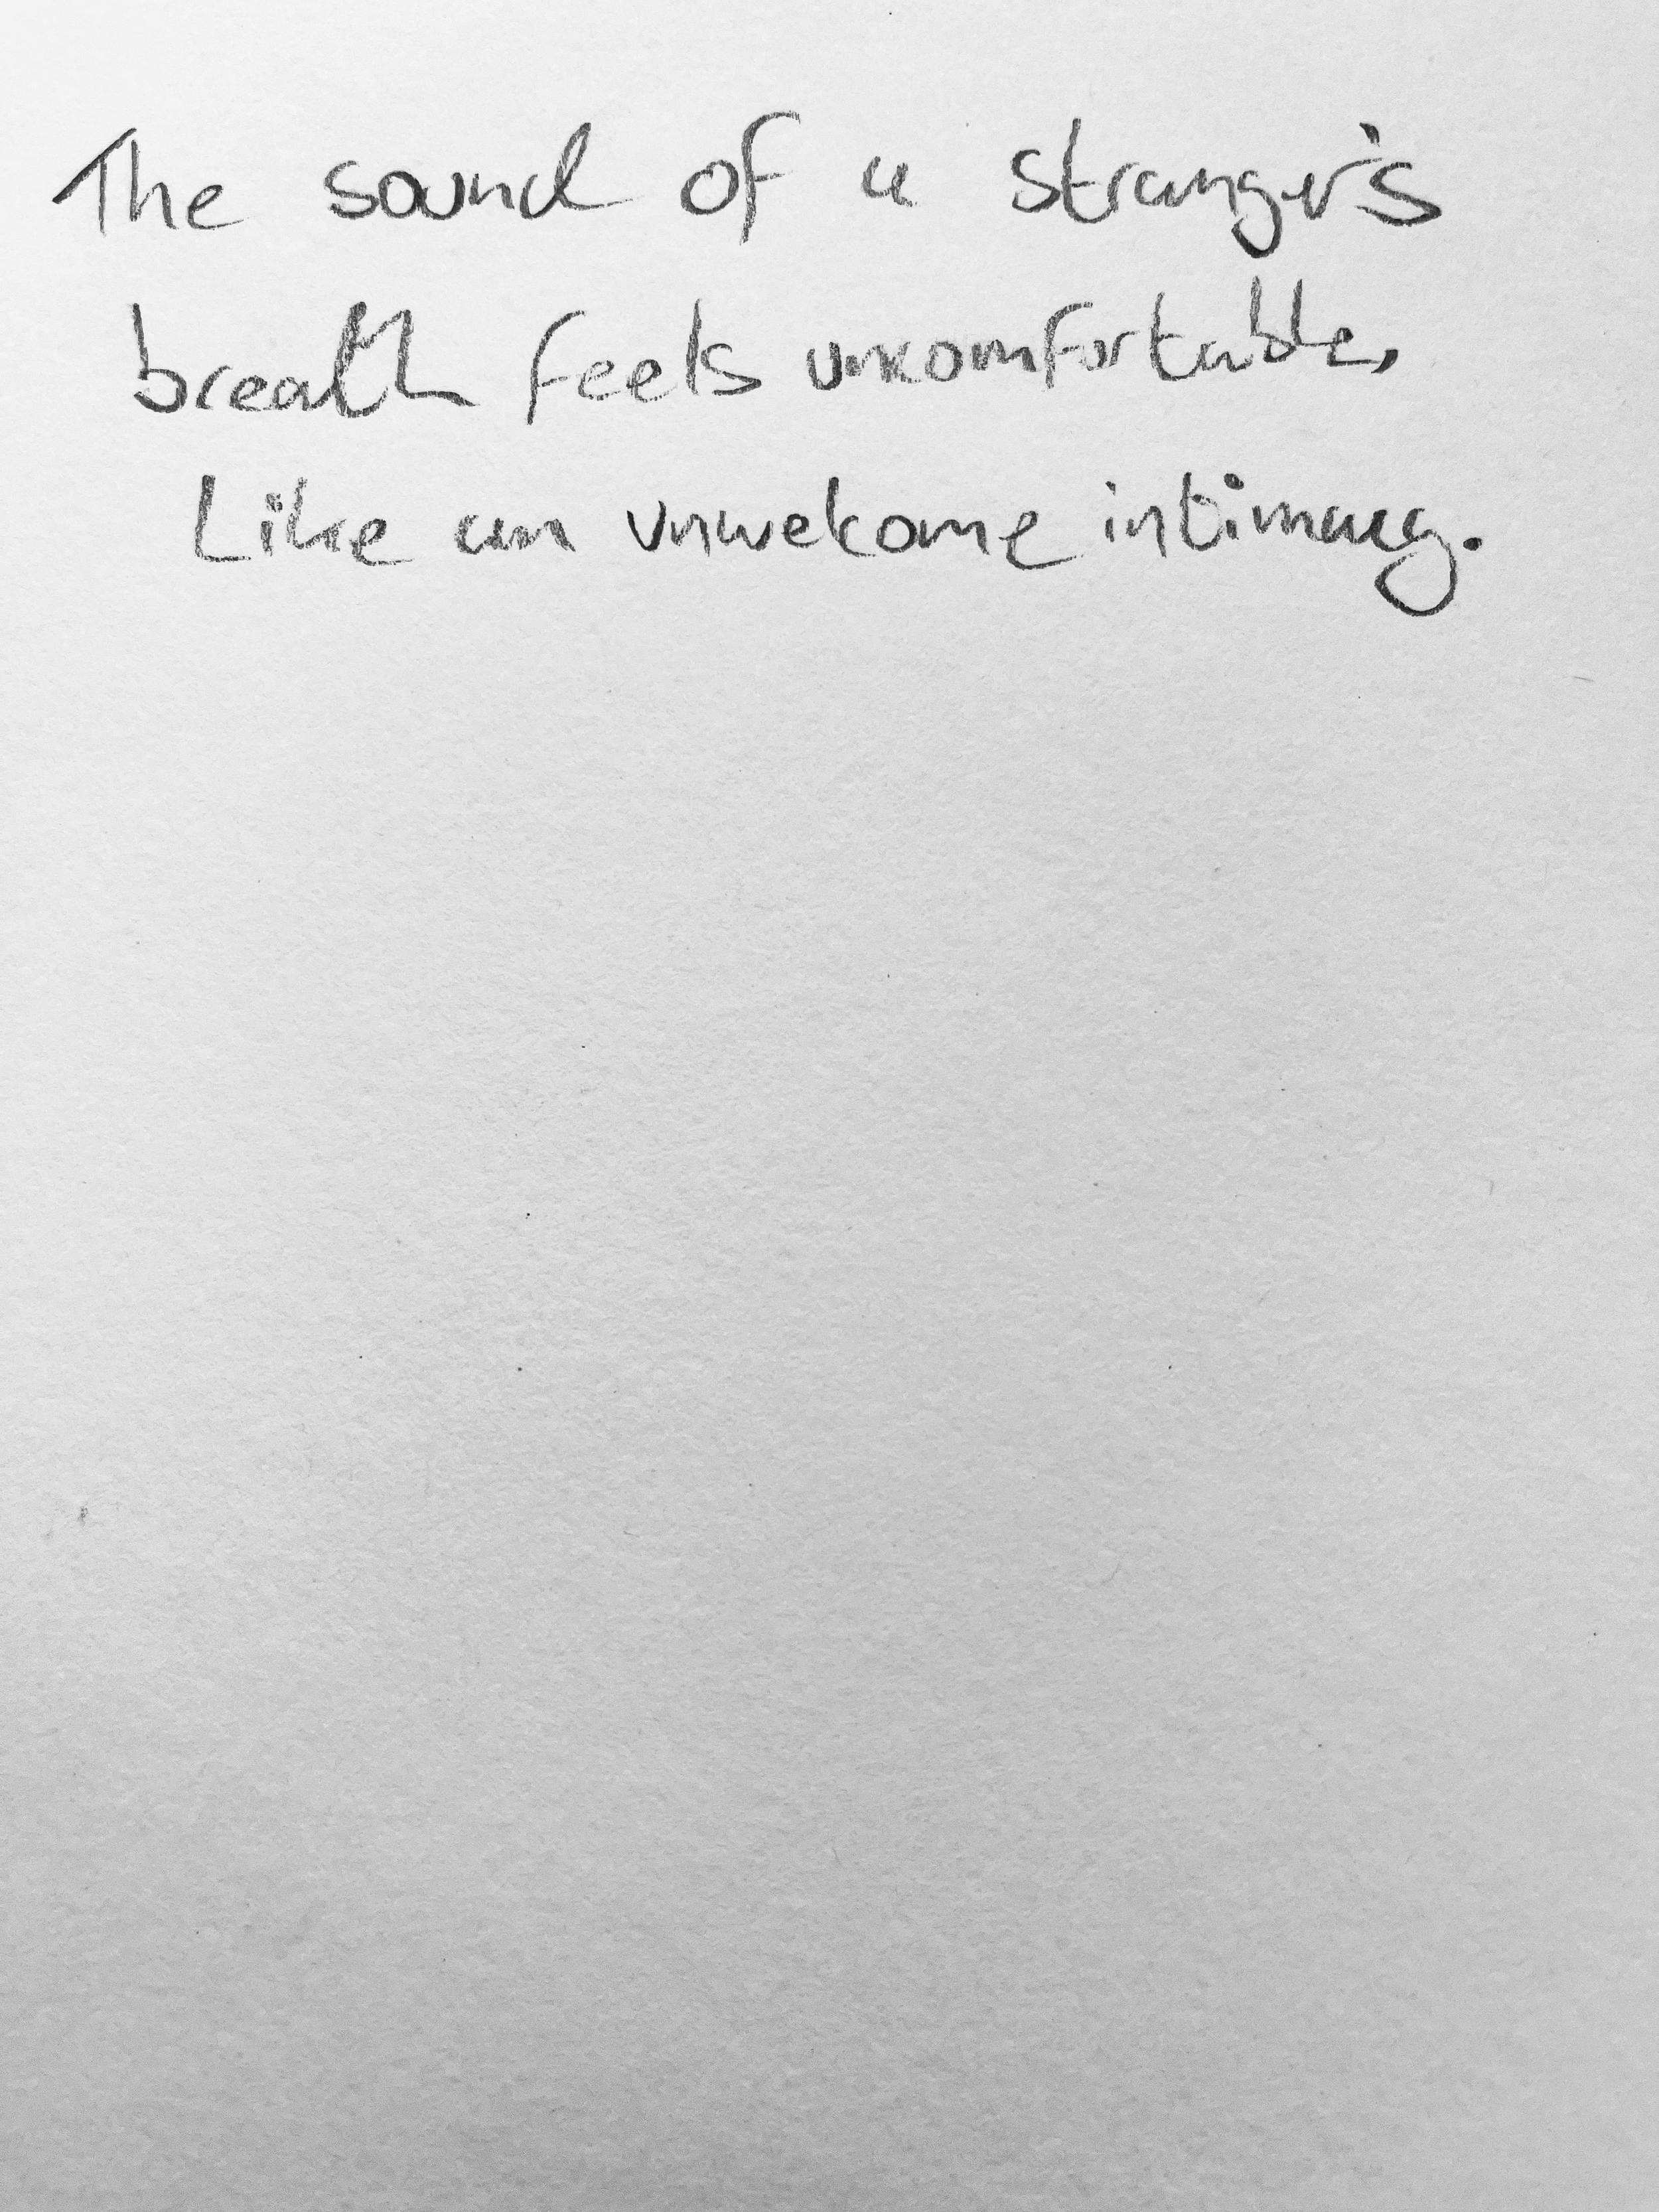 The sound of a stranger's
breath feels uncomfortable,
Like an unwelcome intimacy.